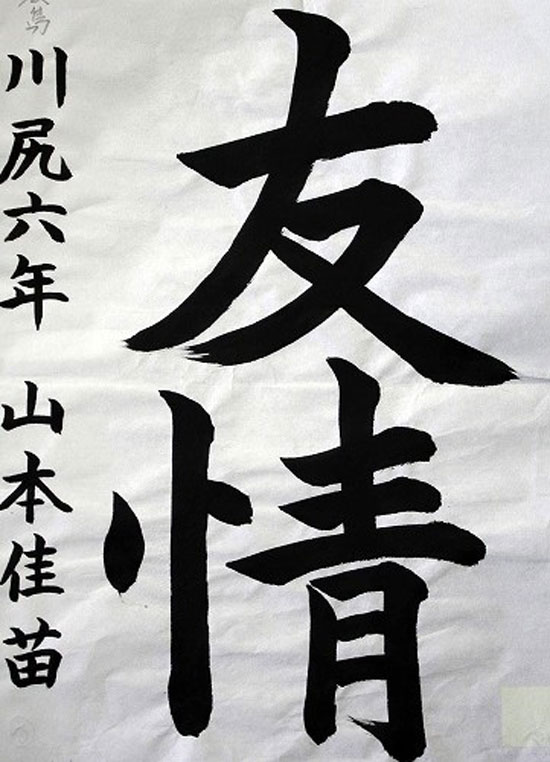 友情
川尻六年 山本佳苗